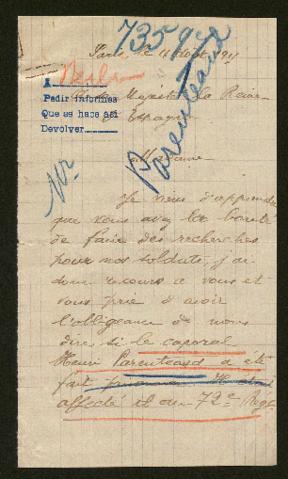 735
Paris, le 11 Août 191
Berlin
Pedir informes
Que se hace así
Devolver
Sa Majesté la Reine
Espagne
Parenteaud
Madame
Je viens d'apprendre
que vous avez la bonté
de faire des recherches
pour nos soldats, j'ai
donc recours à vous et
vous prie d'avoir
l'obligeance de nous
dire si le caporal
Henri Parenteaud a été
fait prisonnier
affecté et au 72e Régt